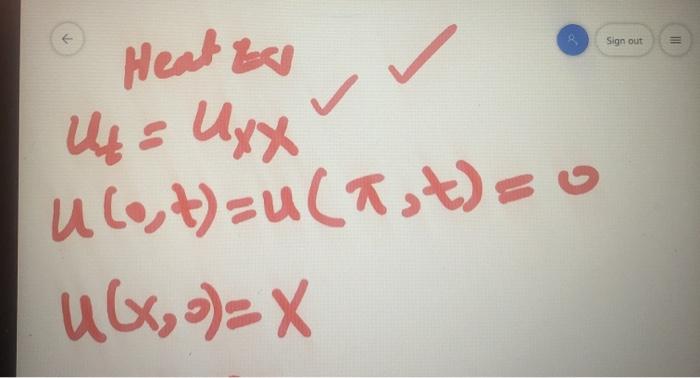 Sign out
Heat Eq
u_t = u_xx
u(0,t)=u(π,t)=0
u(x,0)=x